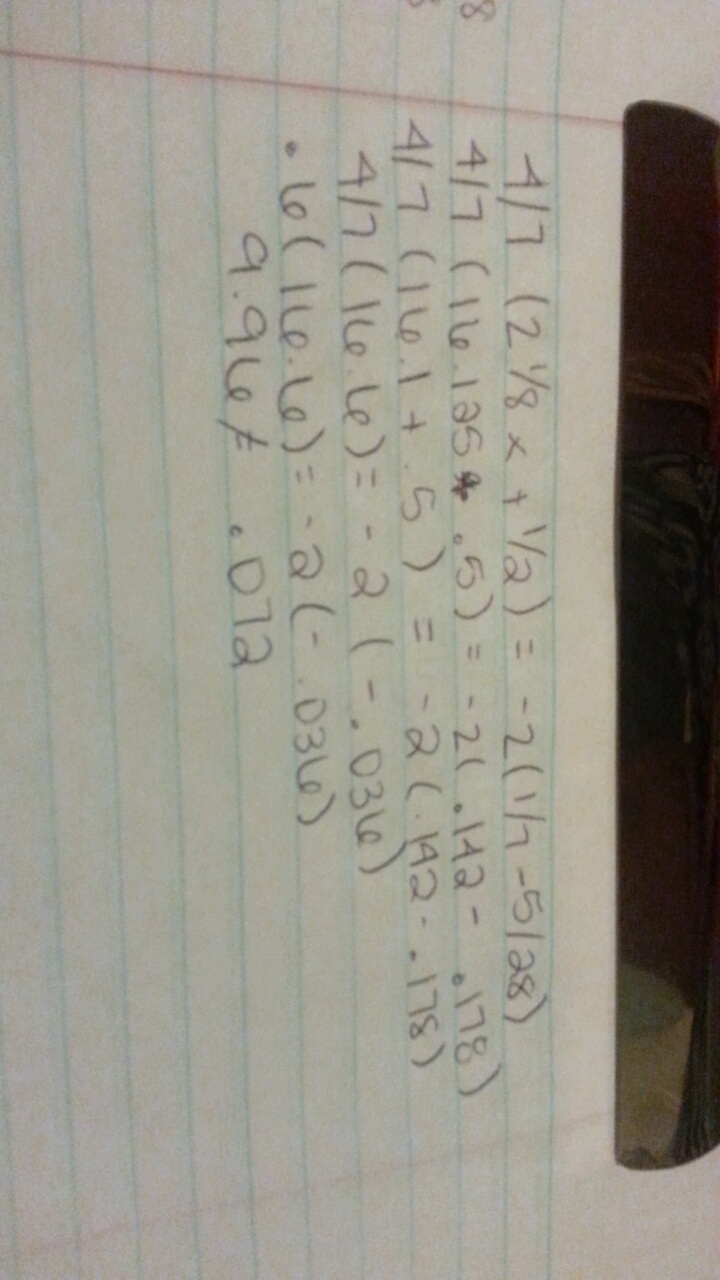 8
4/7 (2 1/8 x + 1/2) = -2(1/7 - 5/28)
4/7 (16.125 + .5) = -2(.142 - .178)
4/7 (16.1 + .5) = -2(.142 - .178)
4/7 (16.6) = -2(-.036)
.6(16.6) = -2(-.036)
9.96 ≠ .072